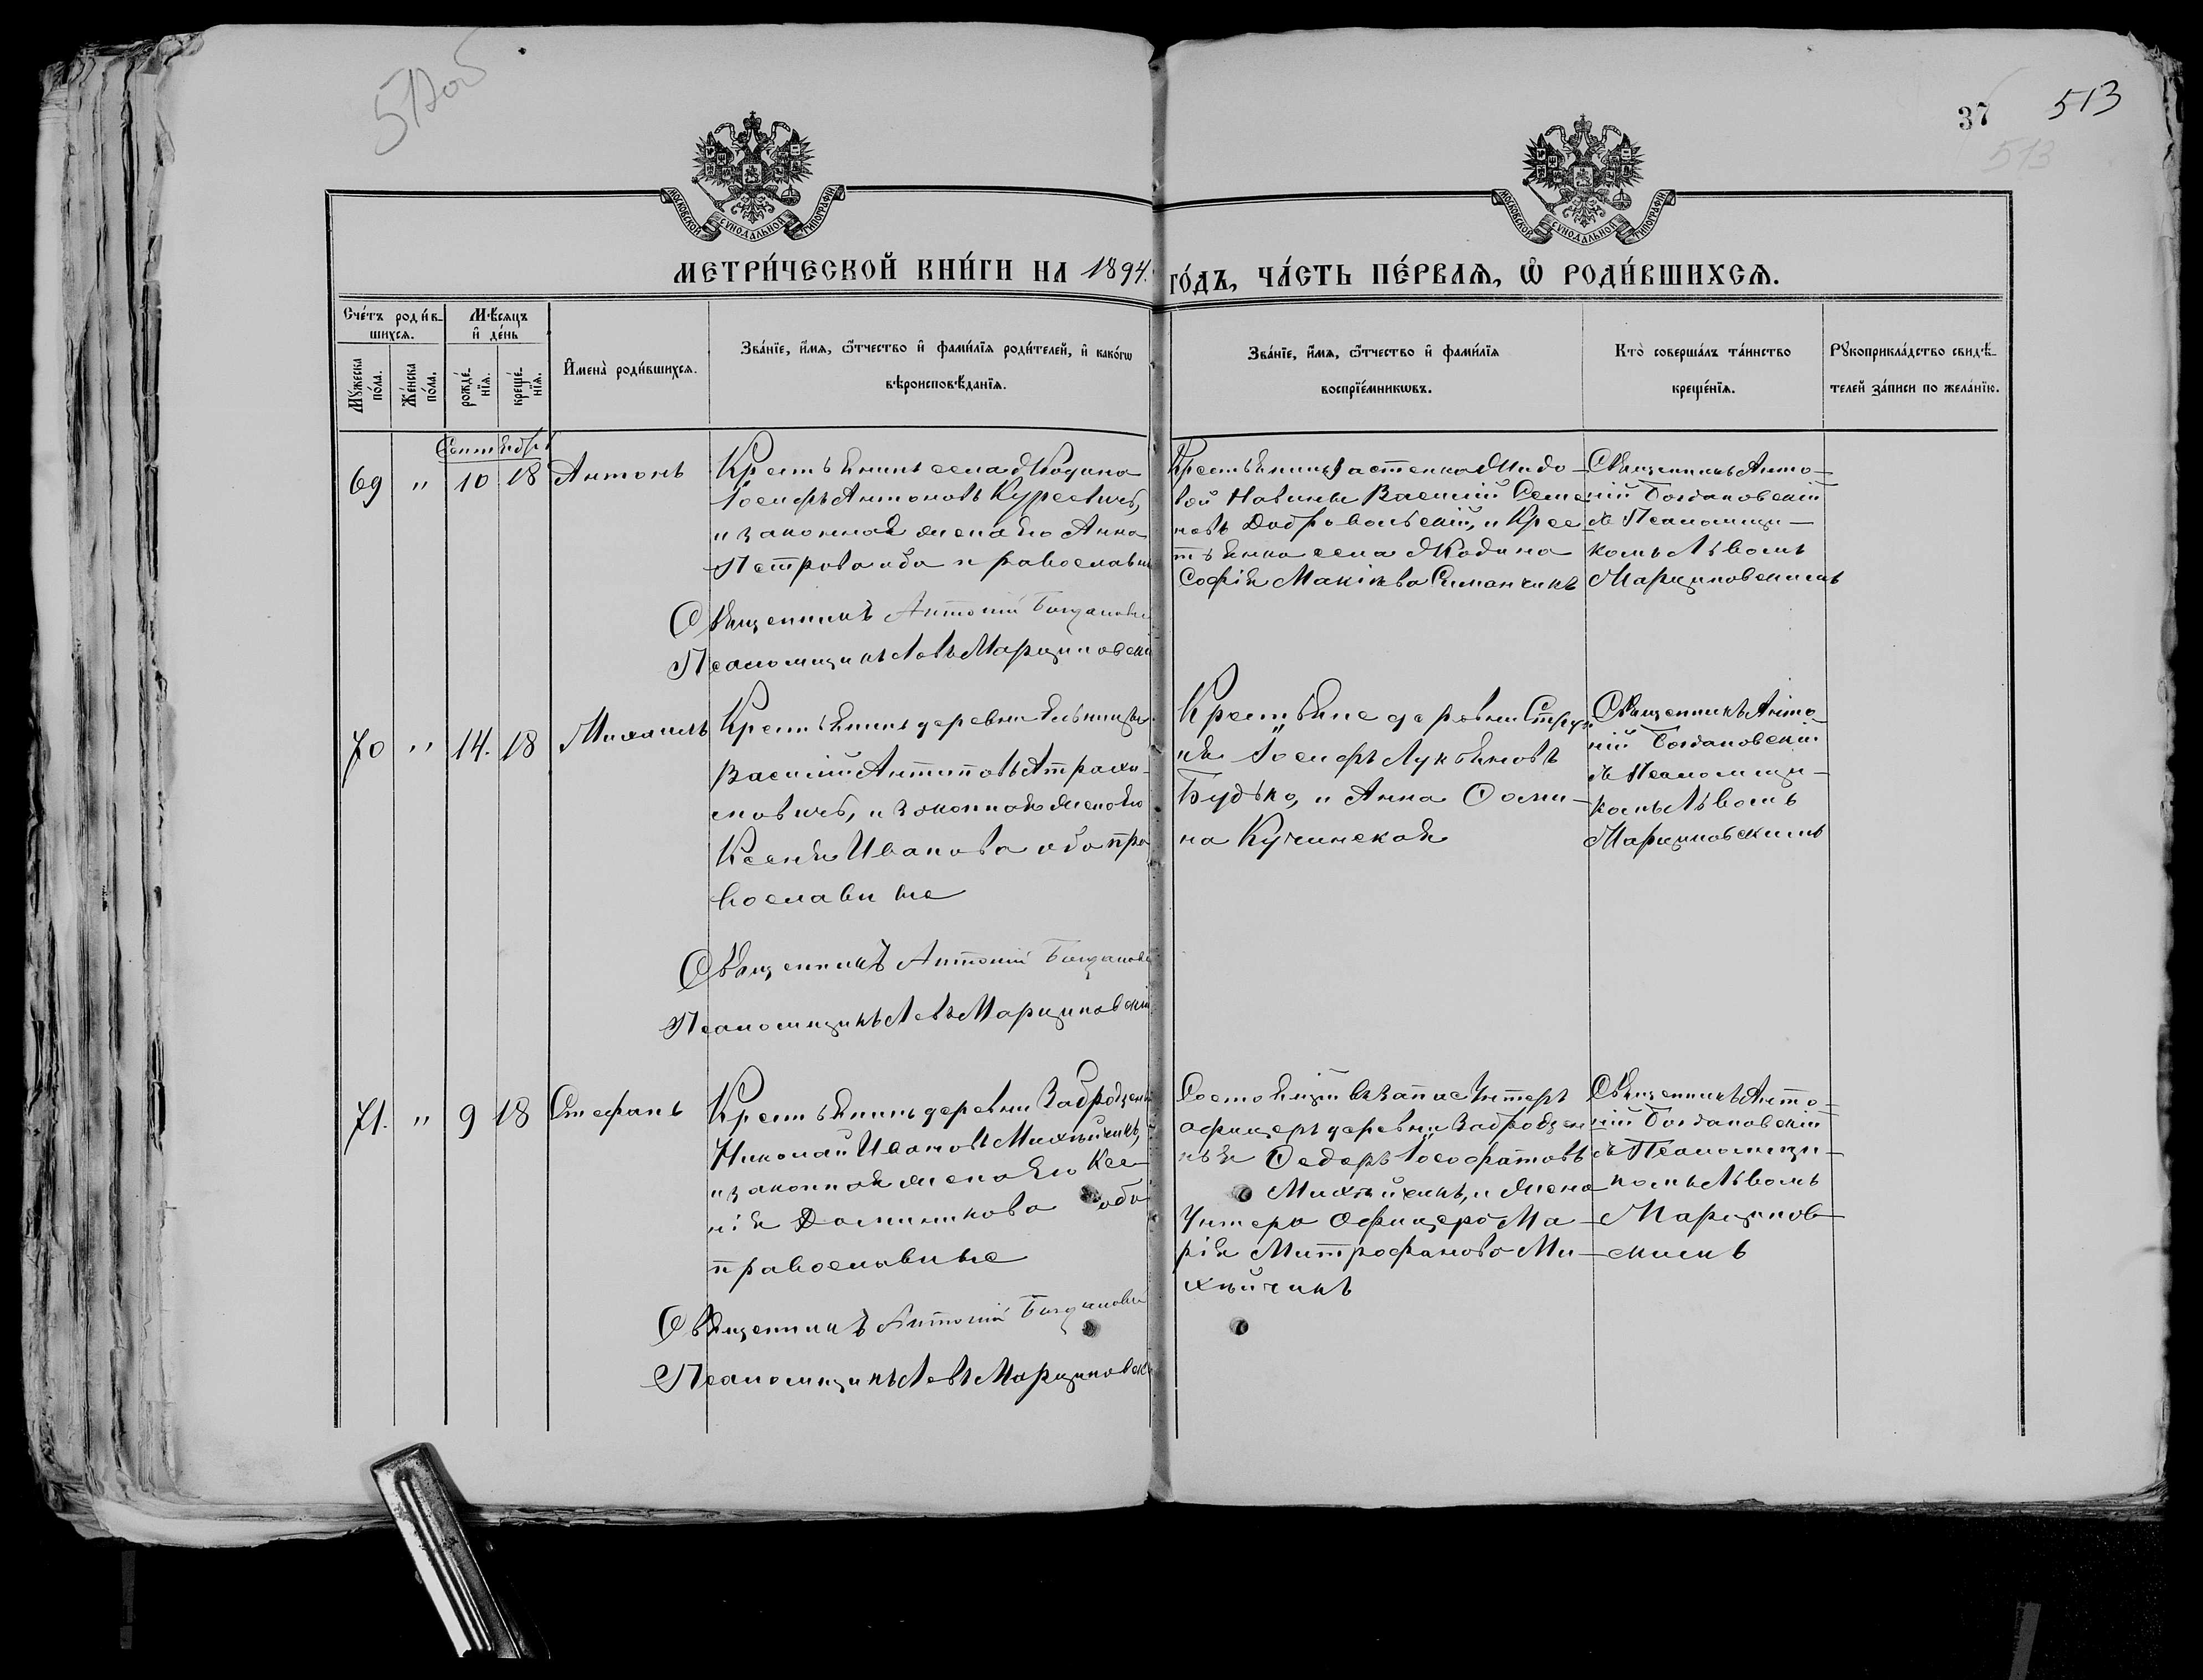 512об
37 513
513
МОСКОВСКОЙ СѴНОДАЛЬНОЙ ТИПОГРАФІИ
МОСКОВСКОЙ СѴНОДАЛЬНОЙ ТИПОГРАФІИ
МЕТРИ́ЧЕСКОЙ КНИ́ГИ НА 1894. ГО́ДЪ, ЧА́СТЬ ПЕ́РВАѦ, Ѽ РОДИ́ВШИХСѦ.
Сче́тъ роди́в-
шихсѧ.
Мꙋ́жеска
по́ла.
Же́нска
по́ла.
Мѣ́сѧцъ
и҆ де́нь
рожде́-
нїѧ.
креще́-
нїѧ.
И҆мена̀ роди́вшихсѧ.
Зва́нїе, и҆́мѧ, ѻ҆́тчество и҆ фами́лїѧ роди́телей, и҆ како́гѡ
вѣроисповѣ́данїѧ.
Зва́нїе, и҆́мѧ, ѻ҆́тчество и҆ фами́лїѧ
воспрїе́мникѡвъ.
Кто̀ соверша́лъ та́инство
креще́нїѧ.
Рꙋкоприкла́дство свидѣ́-
телей за́писи по жела́нїю.
Сентябрь
69 " 10 18 Антонъ
Крестьянинъ села Жодина
Іосифъ Антоновъ Куревичъ,
и законная жена его Анна
Петрова оба православн
Крестьянинъ застенка Жидо-
вой Навины Василій Семе
новъ Добровольскій, и Крес
тьянка села Жодина
Софія Симанчикъ
Священникъ Анто-
ній Богдановскій
съ Псаломщи-
комъ Львомъ
Марциновскимъ
Священникъ Антоній Богдановс
Псаломщикъ Левъ Марциновскі
70 " 14. 18 Михаилъ
Крестьянинъ деревни Ельницы
Василій Антиповъ Атрахи-
мовичъ, и законная жена его
Ксенія Иванова оба пра
вославные
Крестьяне деревни Струп
ня Іосифъ Лукьяновъ
Будько, и Анна Фоми-
на Кучинская
Священникъ Анто-
ній Богдановскій
съ Псаломщи-
комъ Львомъ
Марциновскимъ
Священникъ Антоній Богдановс
Псаломщикъ Левъ Марциновскій
71. " 9 18 Стефанъ
Крестьянинъ деревни Заброdзен
Николай Ивановъ Михнійчикъ,
и законная жена его Ксе-
нія Доминикова оба
православные
Состоящій въ запас Унтеръ
офицеръ деревни
Федоръ Іософатовъ
Михнійчикъ, и жена
Унтера Офицера Ма-
рія Митрофанова Ми-
хнійчикъ
Священникъ Анто-
ній Богдановскій
съ Псаломщи-
комъ Львомъ
Марцинов-
скимъ
Священникъ Антоній Богдановс
Псаломщикъ Левъ Марциновск